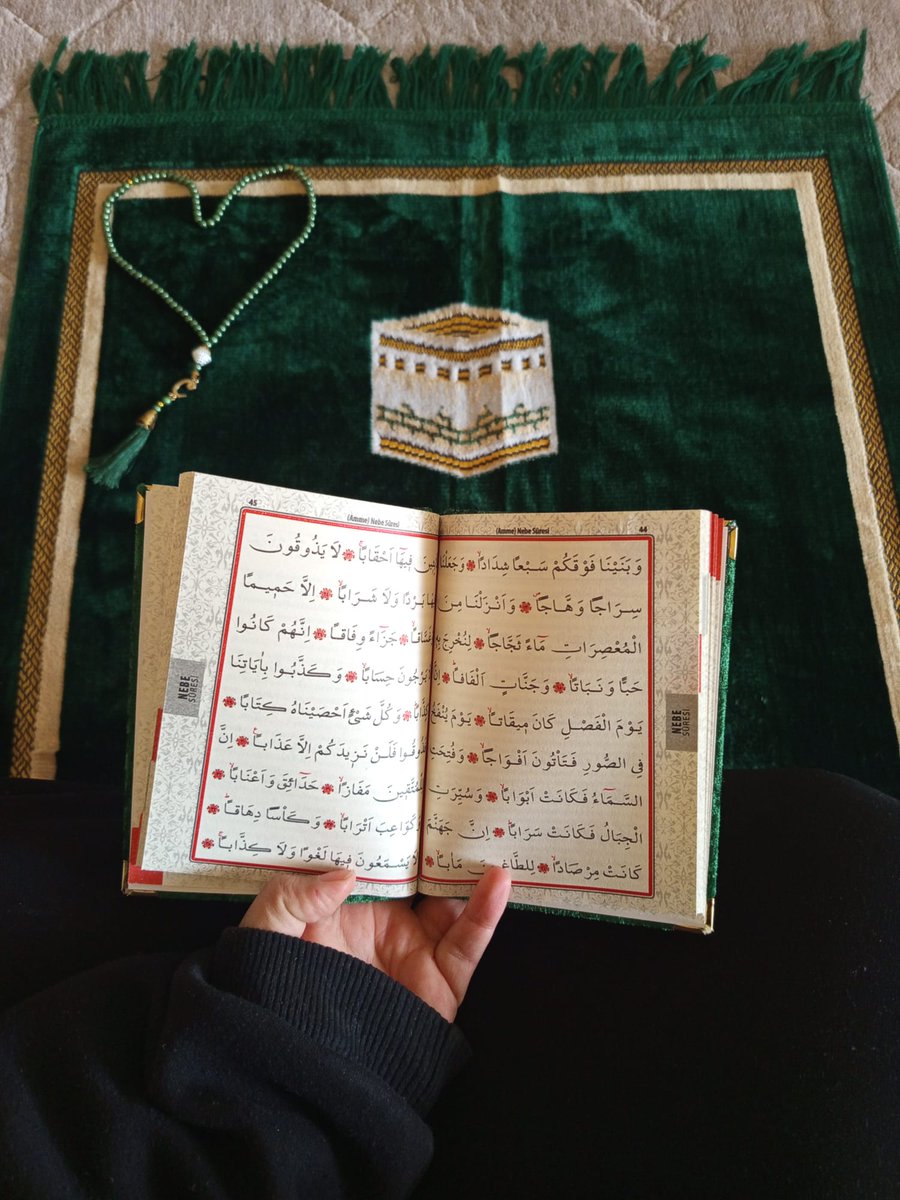 (Amme) Nebe Sûresi 44
وَبَنَيْنَا فَوْقَكُمْ سَبْعًا شِدَادًاۙ وَجَعَلْنَا
سِرَاجًا وَهَّاجًاۙ وَاَنْزَلْنَا مِنَ
الْمُعْصِرَاتِ مَٓاءً ثَجَّاجًاۙ لِنُخْرِجَ بِهِ
حَبًّا وَنَبَاتًاۙ وَجَنَّاتٍ اَلْفَافًاۜ اِنَّ
يَوْمَ الْفَصْلِ كَانَ م۪يقَاتًاۙ يَوْمَ يُنْفَخُ
فِي الصُّورِ فَتَأْتُونَ اَفْوَاجًاۙ وَفُتِحَتِ
السَّمَٓاءُ فَكَانَتْ اَبْوَابًاۙ وَسُيِّرَتِ
الْجِبَالُ فَكَانَتْ سَرَابًاۜ اِنَّ جَهَنَّمَ
كَانَتْ مِرْصَادًاۙ لِلطَّاغ۪ينَ مَاٰبًاۙ
NEBE
SÛRESİ
45 (Amme) Nebe Sûresi
ف۪يهَٓا اَحْقَابًاۚ لَا يَذُوقُونَ
بَرْدًا وَلَا شَرَابًاۙ اِلَّا حَم۪يمًا
جَزَٓاءً وِفَاقًاۜ اِنَّهُمْ كَانُوا
يَرْجُونَ حِسَابًاۙ وَكَذَّبُوا بِاٰيَاتِنَا
وَكُلَّ شَيْءٍ اَحْصَيْنَاهُ كِتَابًاۙ
فَلَنْ نَز۪يدَكُمْ اِلَّا عَذَابًا۟ اِنَّ
مَفَازًاۙ حَدَٓائِقَ وَاَعْنَابًاۙ
كَوَاعِبَ اَتْرَابًاۙ وَكَأْسًا دِهَاقًاۜ
لَا يَسْمَعُونَ ف۪يهَا لَغْوًا وَلَا كِذَّابًاۚ
NEBE
SÛRESİ